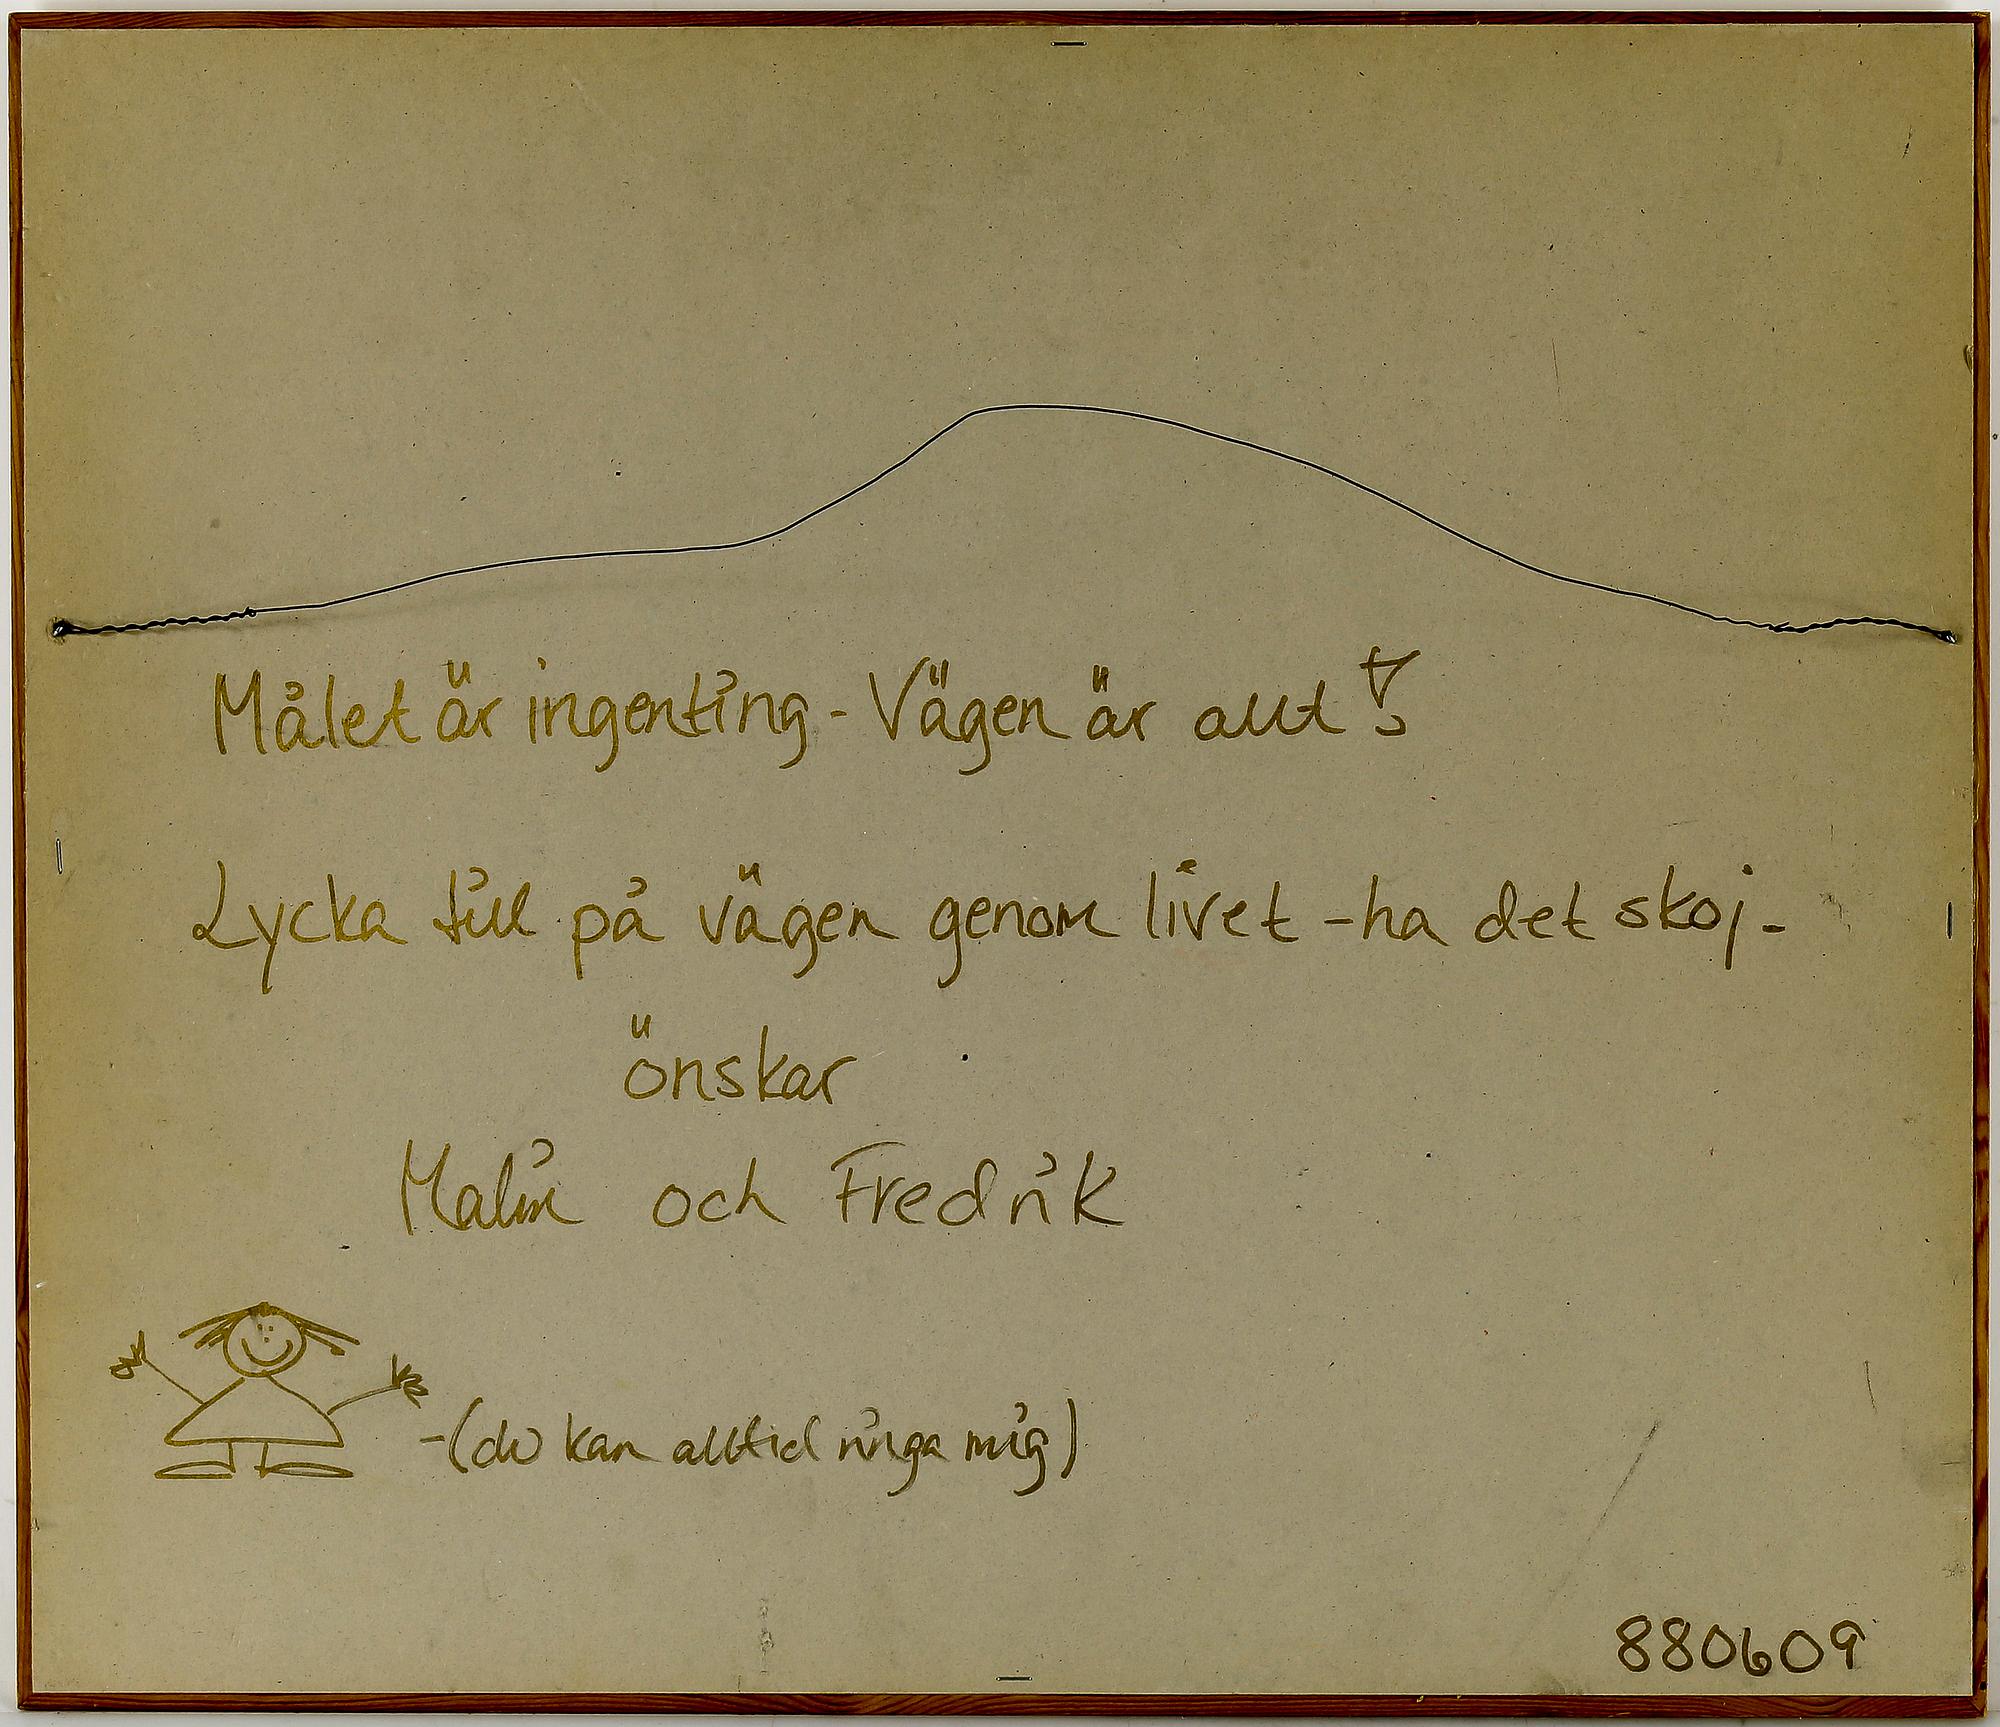 Målet är ingenting - Vägen är allt!
Lycka till på vägen genom livet - ha det skoj -
önskar
Malin och Fredrik
- (du kan alltid ringa mig)
880609